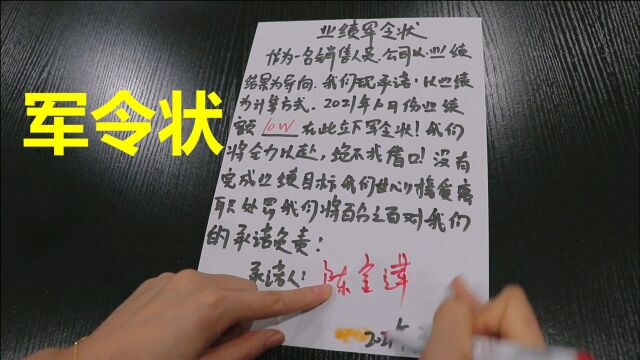 军令状
业绩军令状
作为一名销售人员，公司以业绩
结果为导向，我们现承诺，以业绩
为计算方式，2021年1月份业绩
额 10W 在此立下军令状！我们
将全力以赴，绝不找借口！没有
完成业绩目标我们甘心接受离
职处罚我们将百分之百对我们
的承诺负责！
承诺人：陈宝莲
2021年